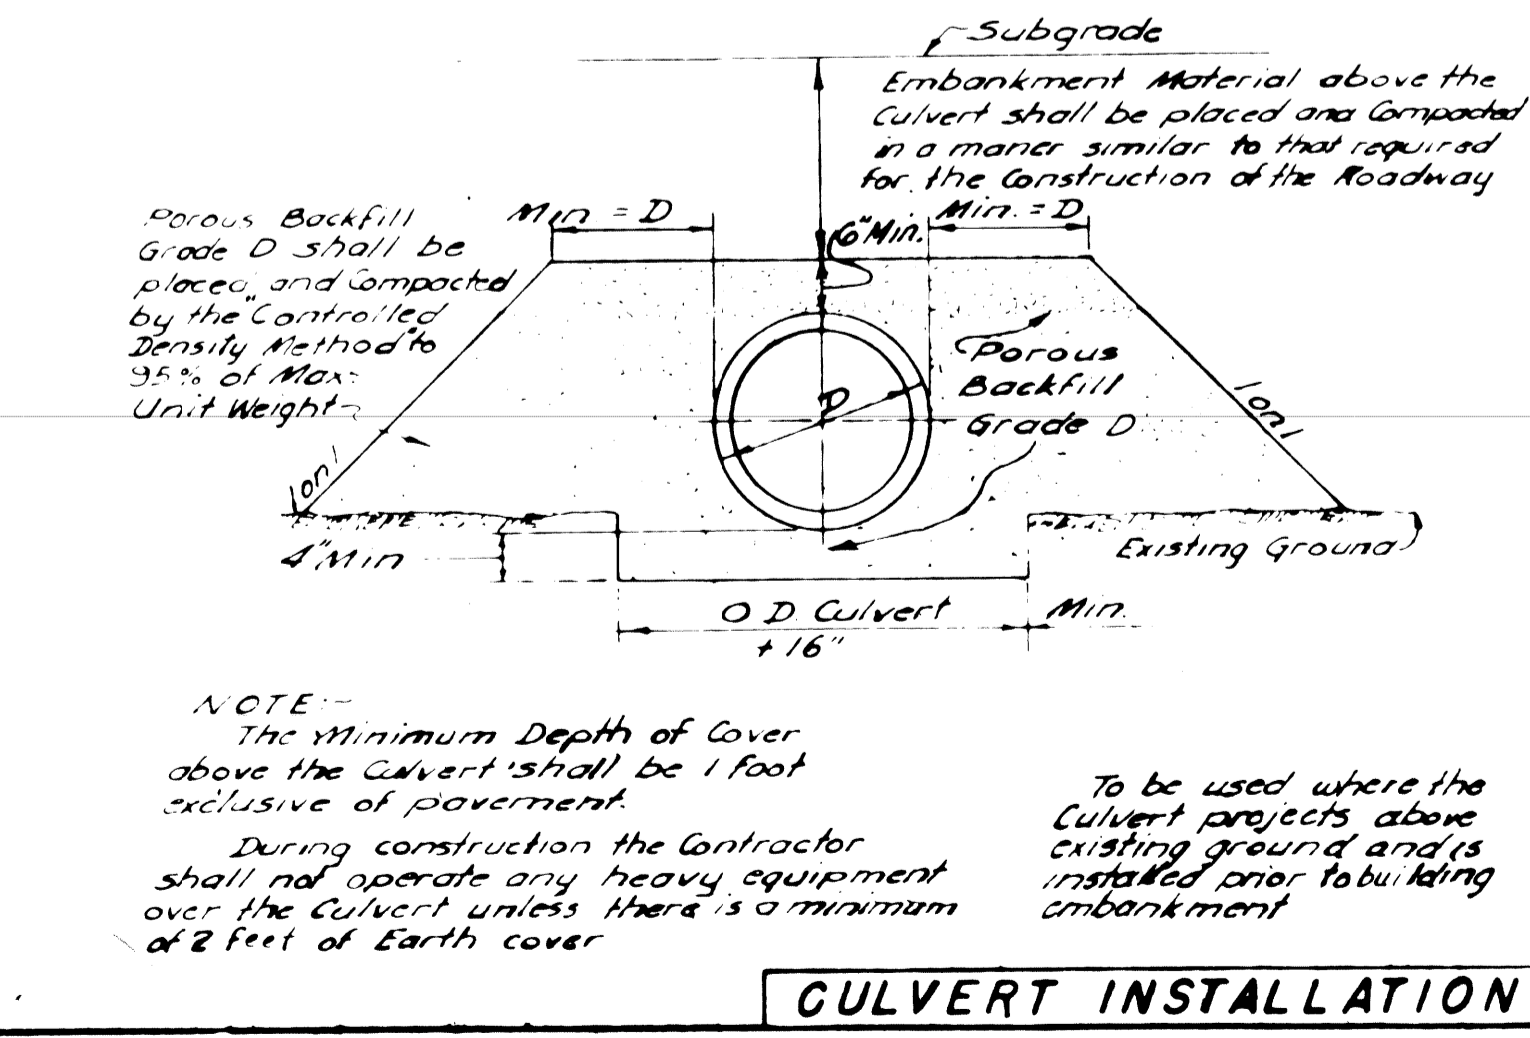 Subgrade
Embankment Material above the
Culvert shall be placed and Compacted
in a maner similar to that required
for the Construction of the Roadway
Porous Backfill
Grade D shall be
placed and Compacted
by the "Controlled
Density Method" to
95% of Max.
Unit Weight
Min = D
6" Min.
Min. = D
D
Porous
Backfill
Grade D
1 on 1
1 on 1
4" Min
Existing Ground
O D. Culvert Min.
+ 16"
NOTE:-
The Minimum Depth of Cover
above the Culvert shall be 1 foot
exclusive of pavement.
During construction the Contractor
shall not operate any heavy equipment
over the Culvert unless there is a minimum
of 2 feet of Earth cover
To be used where the
Culvert projects above
existing ground and is
installed prior to building
embankment
CULVERT INSTALLATION